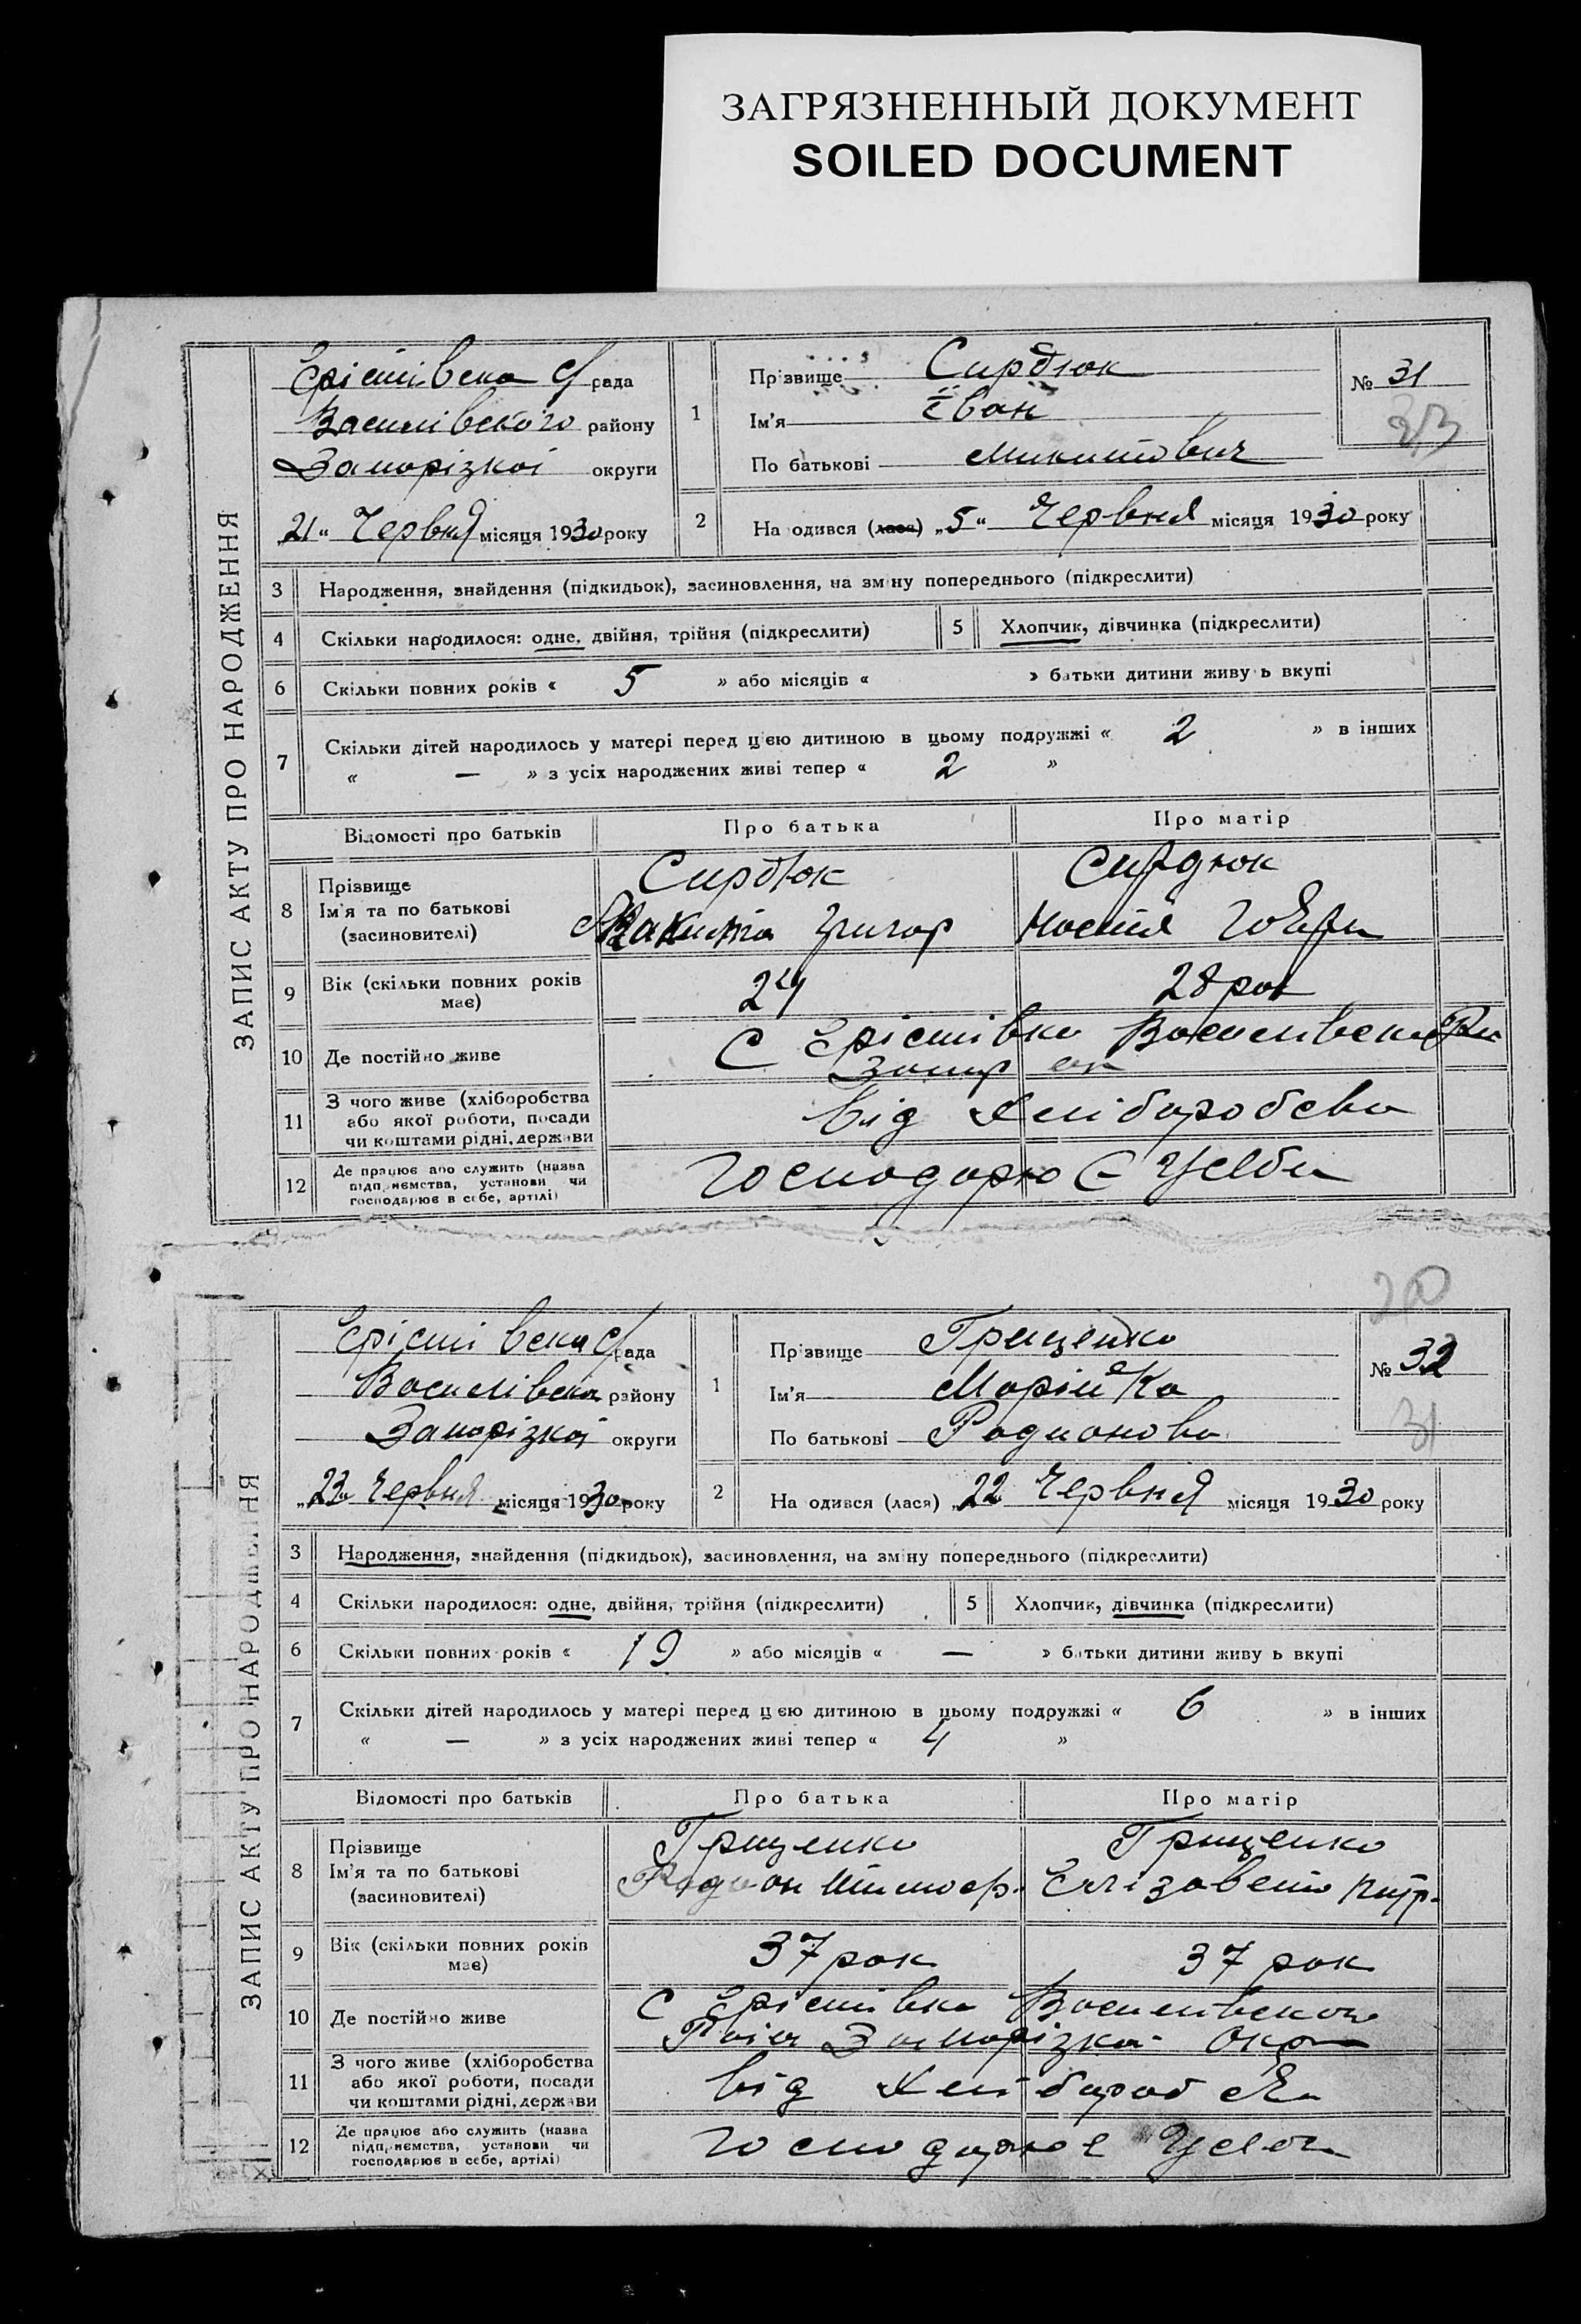 ЗАГРЯЗНЕННЫЙ ДОКУМЕНТ
SOILED DOCUMENT
ЗАПИС АКТУ ПРО НАРОДЖЕННЯ
Єрістівска с/рада
Василівського району
Запорізкої округи
„21“ Червня місяця 1930 року
1
Прізвище Сирдюк
Ім'я Іван
По батькові Микитович
№ 31
2
На одився (лася) „5“ Червня місяця 1930 року
3 Народження, знайдення (підкидьок), засиновлення, на зміну попереднього (підкреслити)
4 Скільки народилося: одне, двійня, трійня (підкреслити)
5 Хлопчик, дівчинка (підкреслити)
6 Скільки повних років « 5 » або місяців « » батьки дитини живу ь вкупі
7 Скільки дітей народилось у матері перед цією дитиною в цьому подружжі « 2 » в інших
« — » з усіх народжених живі тепер « 2 »
Відомості про батьків Про батька Про матір
8 Прізвище
Ім'я та по батькові
(засиновителі)
Сирдюк
Сирдюк
Микита Григор
Настя
9 Вік (скільки повних років
має)
28 рок
10 Де постійно живе
С Єрістівка Василівськ
Запор ок
11 З чого живе (хліборобства
або якої роботи, посади
чи коштами рідні, держави
від Хліборобсва
12 Де працює або служить (назва
підприємства, установи чи
господарює в себе, артілі)
Господарює Усебе
ЗАПИС АКТУ ПРО НАРОДЖЕННЯ
Єрістівска с/рада
Василівска району
Запорізкої округи
„23“ Червня місяця 1930 року
1
Прізвище Грищенко
Ім'я Марійка
По батькові Радионова
№ 32
31
2
На одився (лася) „22 Червня місяця 1930 року
3 Народження, знайдення (підкидьок), засиновлення, на зміну попереднього (підкреслити)
4 Скільки народилося: одне, двійня, трійня (підкреслити)
5 Хлопчик, дівчинка (підкреслити)
6 Скільки повних років « 19 » або місяців « — » батьки дитини живу ь вкупі
7 Скільки дітей народилось у матері перед цією дитиною в цьому подружжі « 6 » в інших
« — » з усіх народжених живі тепер « 4 »
Відомості про батьків Про батька Про матір
8 Прізвище
Ім'я та по батькові
(засиновителі)
Грищенко
Грищенко
Радион Тимоф.
Єлізавета
9 Вік (скільки повних років
має)
37 рок
37 рок
10 Де постійно живе
С Єрістівка Василівского
Запорізка Окр
11 З чого живе (хліборобства
або якої роботи, посади
чи коштами рідні, держави
від
12 Де працює або служить (назва
підприємства, установи чи
господарює в себе, артілі)
Господарює Усебе